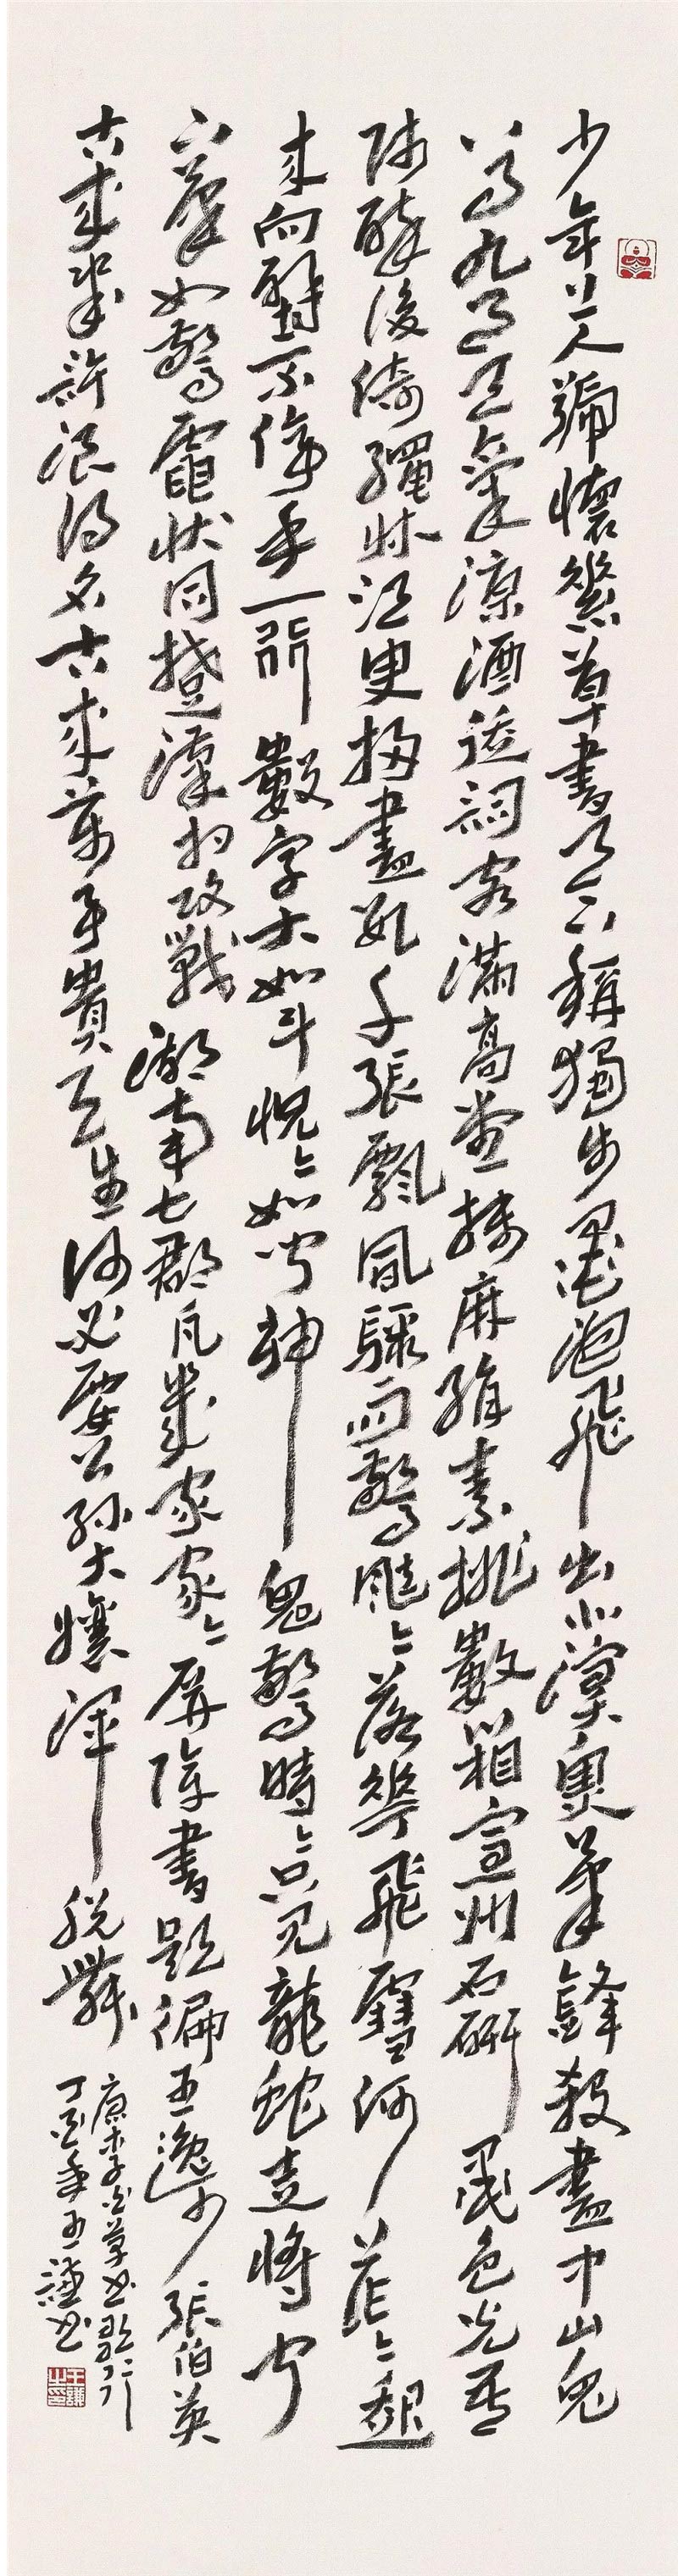 少年上人號懷素草書天下稱獨步墨池飛出北溟魚筆鋒殺盡中山兔
八月九月天氣涼酒徒詞客滿高堂牋麻絹素排數箱宣州石硯墨色光吾
師醉後倚繩牀須臾掃盡數千張飄風驟雨驚颯々落花飛雪何茫々起
來向壁不停手一行數字大如斗怳々如聞神鬼驚時々只見龍蛇走
如驚電狀同楚漢相攻戰湖南七郡凡幾家家々屏障書題徧王逸少張伯英
古來幾許浪得名古來萬事貴天生何必要公孫大孃渾脫舞
唐李白草書歌行
丁酉年王謙書